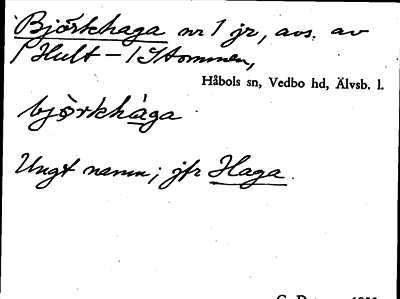 Björkhaga nr 1 jr, avs. av
1 Hult – 1 Stommen,
Håbols sn, Vedbo hd, Älvsb. l.
björkhàga
Ungt namn; jfr Haga.